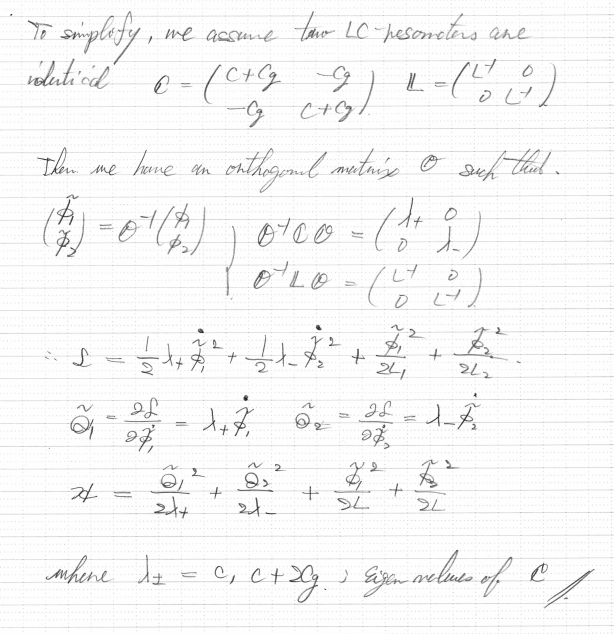 To simplify, we assume two LC-resonators are
identical ℂ = ( C+Cg -Cg ; -Cg C+Cg ) 𝕃 = ( L⁻¹ 0 ; 0 L⁻¹ )
Then we have an orthogonal matrix O such that.
( ϕ̃₁ ; ϕ̃₂ ) = O⁻¹ ( ϕ₁ ; ϕ₂ ) , O⁻¹ ℂ O = ( λ+ 0 ; 0 λ- )
O⁻¹ 𝕃 O = ( L⁻¹ 0 ; 0 L⁻¹ )
∴ ℒ = 1/2 λ+ ϕ̃̇₁² + 1/2 λ- ϕ̃̇₂² + ϕ̃₁²/2L₁ + ϕ̃₂²/2L₂ .
Q̃₁ = ∂ℒ/∂ϕ̃̇₁ = λ+ ϕ̃̇₁ Q̃₂ = ∂ℒ/∂ϕ̃̇₂ = λ- ϕ̃̇₂
ℋ = Q̃₁²/2λ+ + Q̃₂²/2λ- + ϕ̃₁²/2L + ϕ̃₂²/2L
where λ± = C, C+2Cg ; Eigen values of ℂ //